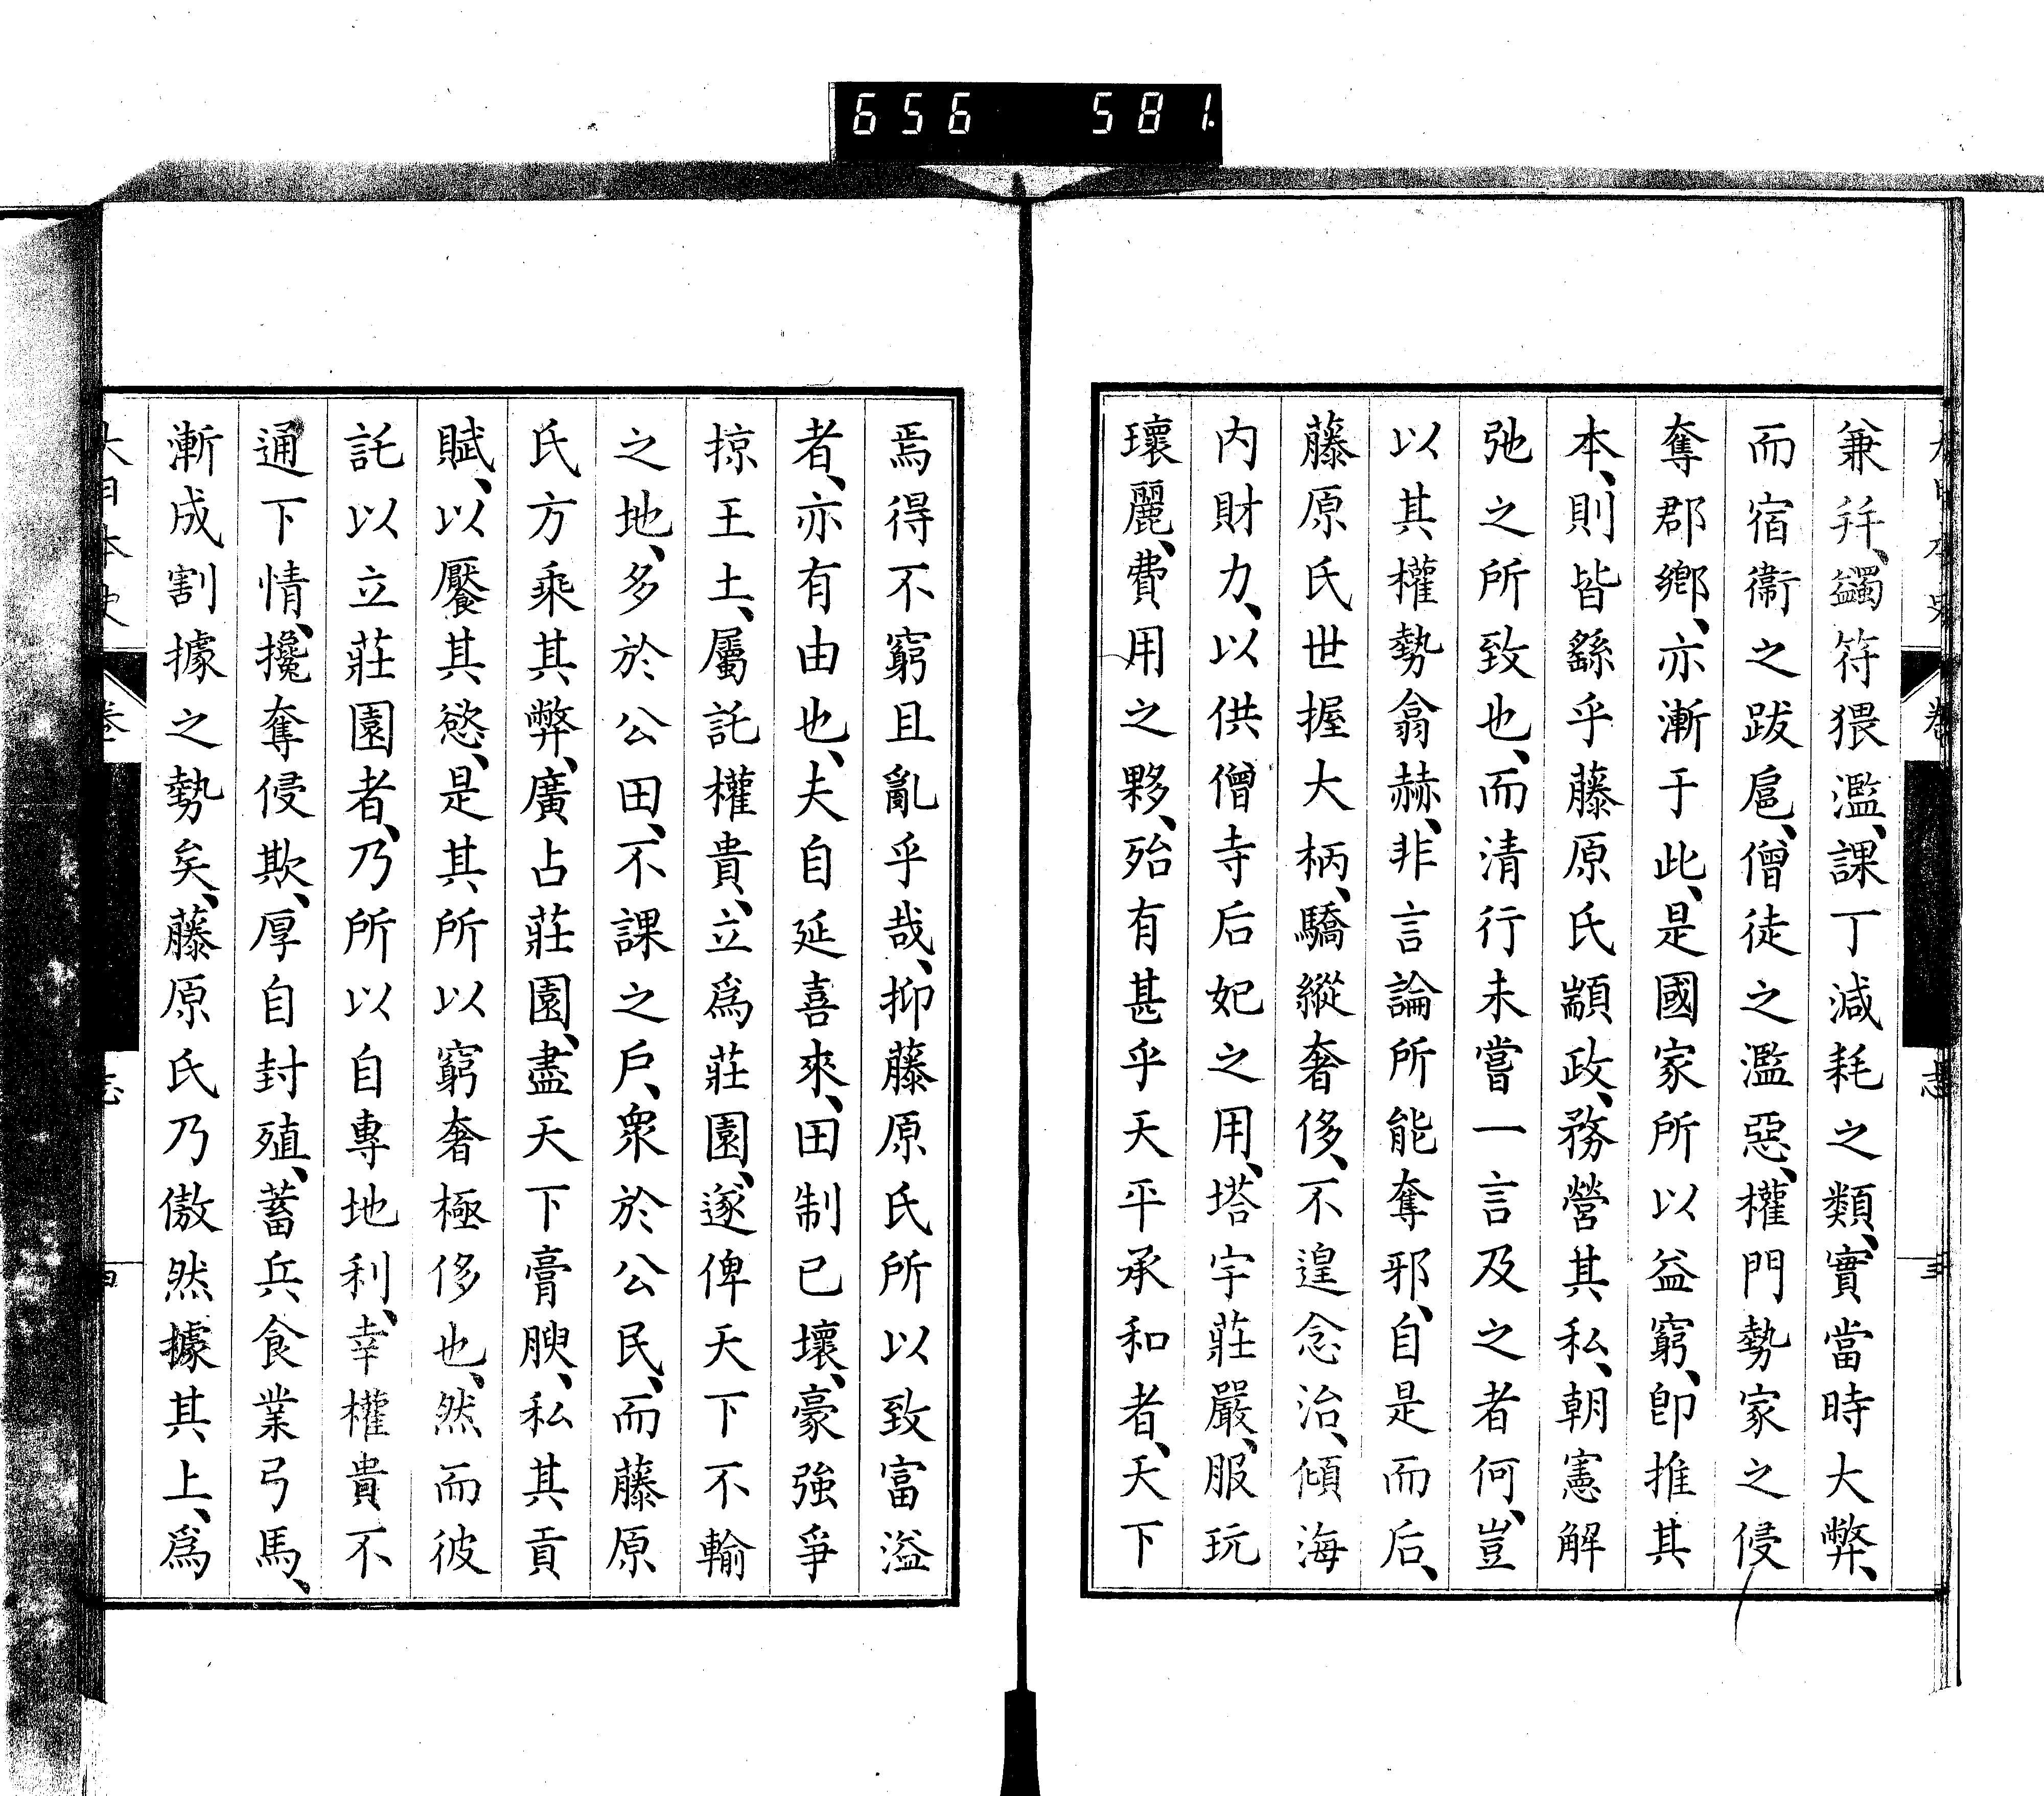 656 581
兼幷、蠲符猥濫、課丁減耗之類、實當時大弊、
而宿衞之跋扈、僧徒之濫惡、權門勢家之侵
奪郡鄕、亦漸于此、是國家所以益窮、卽推其
本、則皆繇乎藤原氏顓政、務營其私、朝憲解
弛之所致也、而清行未嘗一言及之者何、豈
以其權勢翕赫、非言論所能奪邪、自是而后、
藤原氏世握大柄、驕縱奢侈、不遑念治、傾海
内財力、以供僧寺后妃之用、塔宇莊嚴、服玩
瓌麗、費用之夥、殆有甚乎天平承和者、天下
焉得不窮且亂乎哉、抑藤原氏所以致富溢
者、亦有由也、夫自延喜來、田制已壞、豪強爭
掠王土、屬託權貴、立爲莊園、遂俾天下不輸
之地、多於公田、不課之戶、衆於公民、而藤原
氏方乘其弊、廣占莊園、盡天下膏腴、私其貢
賦、以饜其慾、是其所以窮奢極侈也、然而彼
託以立莊園者、乃所以自專地利、幸權貴不
通下情、攙奪侵欺、厚自封殖、蓄兵食業弓馬、
漸成割據之勢矣、藤原氏乃傲然據其上、爲
大日本史 卷 志